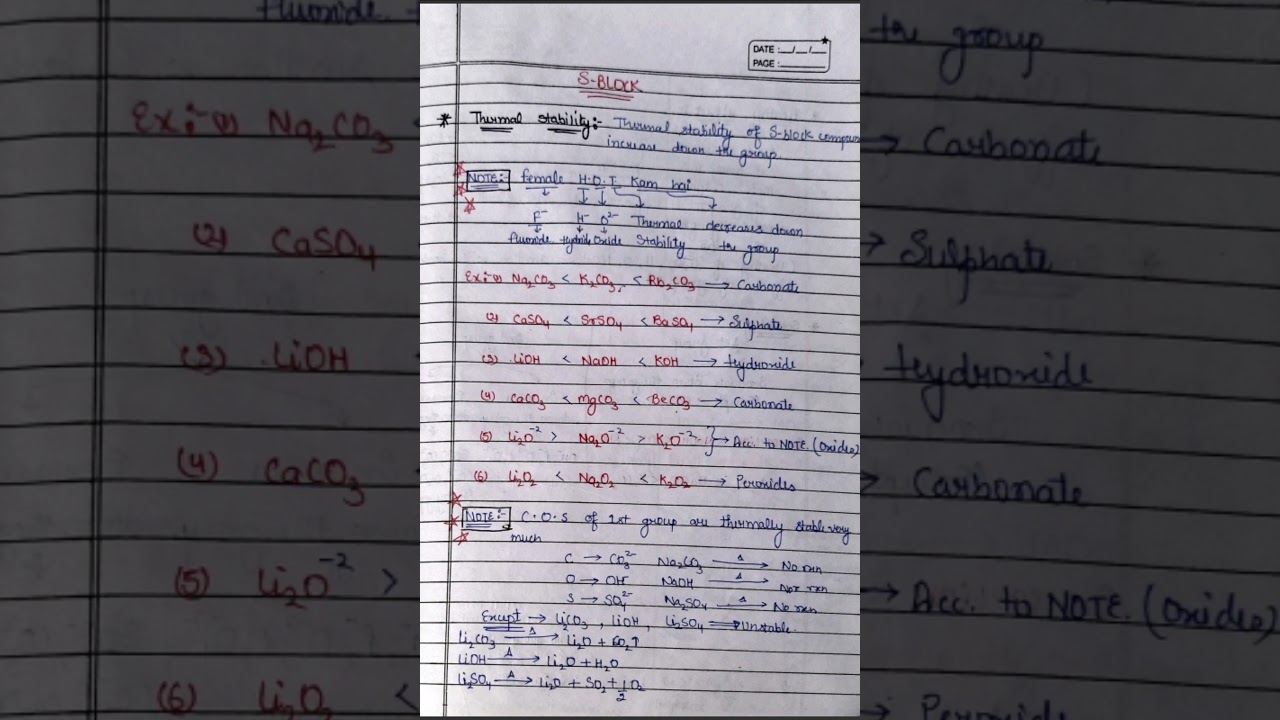 DATE :__/__/__
PAGE :______
S-BLOCK
* Thermal stability:- Thermal stability of S-block compoun
increase down the group.
NOTE:- female H.O.T Kam hai
F⁻ H⁻ O²⁻ Thermal decreases down
fluoride Hydride Oxide Stability the group
Ex:- (1) Na₂CO₃ < K₂CO₃ < Rb₂CO₃ → Carbonate
(2) CaSO₄ < SrSO₄ < BaSO₄ → Sulphate
(3) LiOH < NaOH < KOH → Hydroxide
(4) CaCO₃ < MgCO₃ < BeCO₃ → Carbonate
(5) Li₂O⁻² > Na₂O⁻² > K₂O⁻² } → Acc. to NOTE. (Oxides)
(6) Li₂O₂ < Na₂O₂ < K₂O₂ → Peroxides
NOTE:- C.O.S of 1st group are thermally stable very
much
C → CO₃²⁻ Na₂CO₃ —Δ→ No rxn
O → OH⁻ NaOH —Δ→ Not rxn
S → SO₄²⁻ Na₂SO₄ —Δ→ No rxn
Except → Li₂CO₃, LiOH, Li₂SO₄ ⇒ Unstable.
Li₂CO₃ —Δ→ Li₂O + CO₂↑
LiOH —Δ→ Li₂O + H₂O
Li₂SO₄ —Δ→ Li₂O + SO₂ + 1/2 O₂
fluoride
Ex:- (1) Na₂CO₃
(2) CaSO₄
(3) LiOH
(4) CaCO₃
(5) Li₂O⁻² >
(6) Li₂O₂ <
the group
→ Carbonate
→ Sulphate
Hydroxide
→ Carbonate
→ Acc. to NOTE. (Oxides)
→ Peroxides